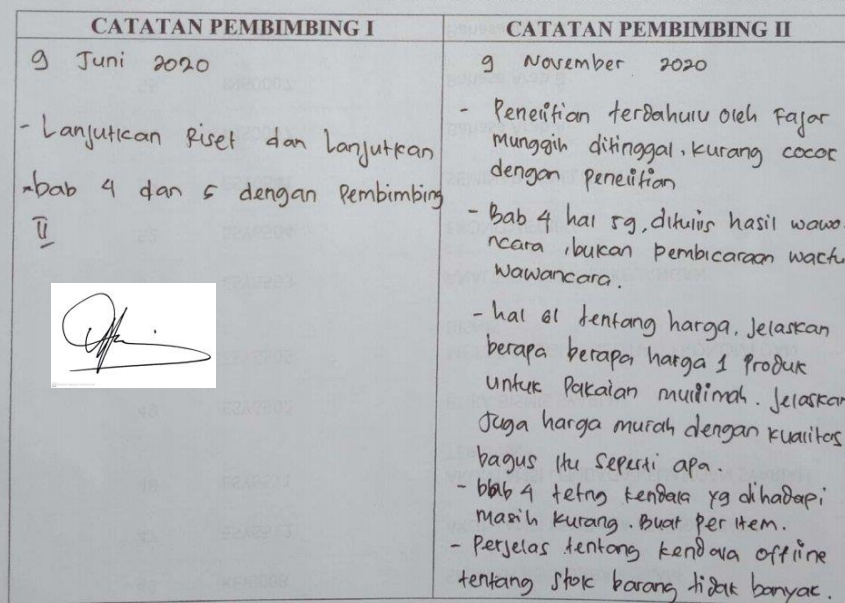 CATATAN PEMBIMBING I
9 Juni 2020
- Lanjutkan Riset dan Lanjutkan
bab 4 dan 5 dengan Pembimbing
II
CATATAN PEMBIMBING II
9 November 2020
- Penelitian terdahulu oleh Fajar
Munggih ditinggal, kurang cocok
dengan penelitian
- Bab 4 hal 59, ditulis hasil wawa-
ncara, bukan pembicaraan waktu
wawancara.
- hal 61 tentang harga, Jelaskan
berapa berapa harga 1 Produk
untuk Pakaian muslimah. Jelaskan
Juga harga murah dengan kualitas
bagus itu seperti apa.
- bab 4 tetng kendala yg dihadapi
masih kurang. Buat per item.
- Perjelas tentang kendala offline
tentang stok barang tidak banyak.